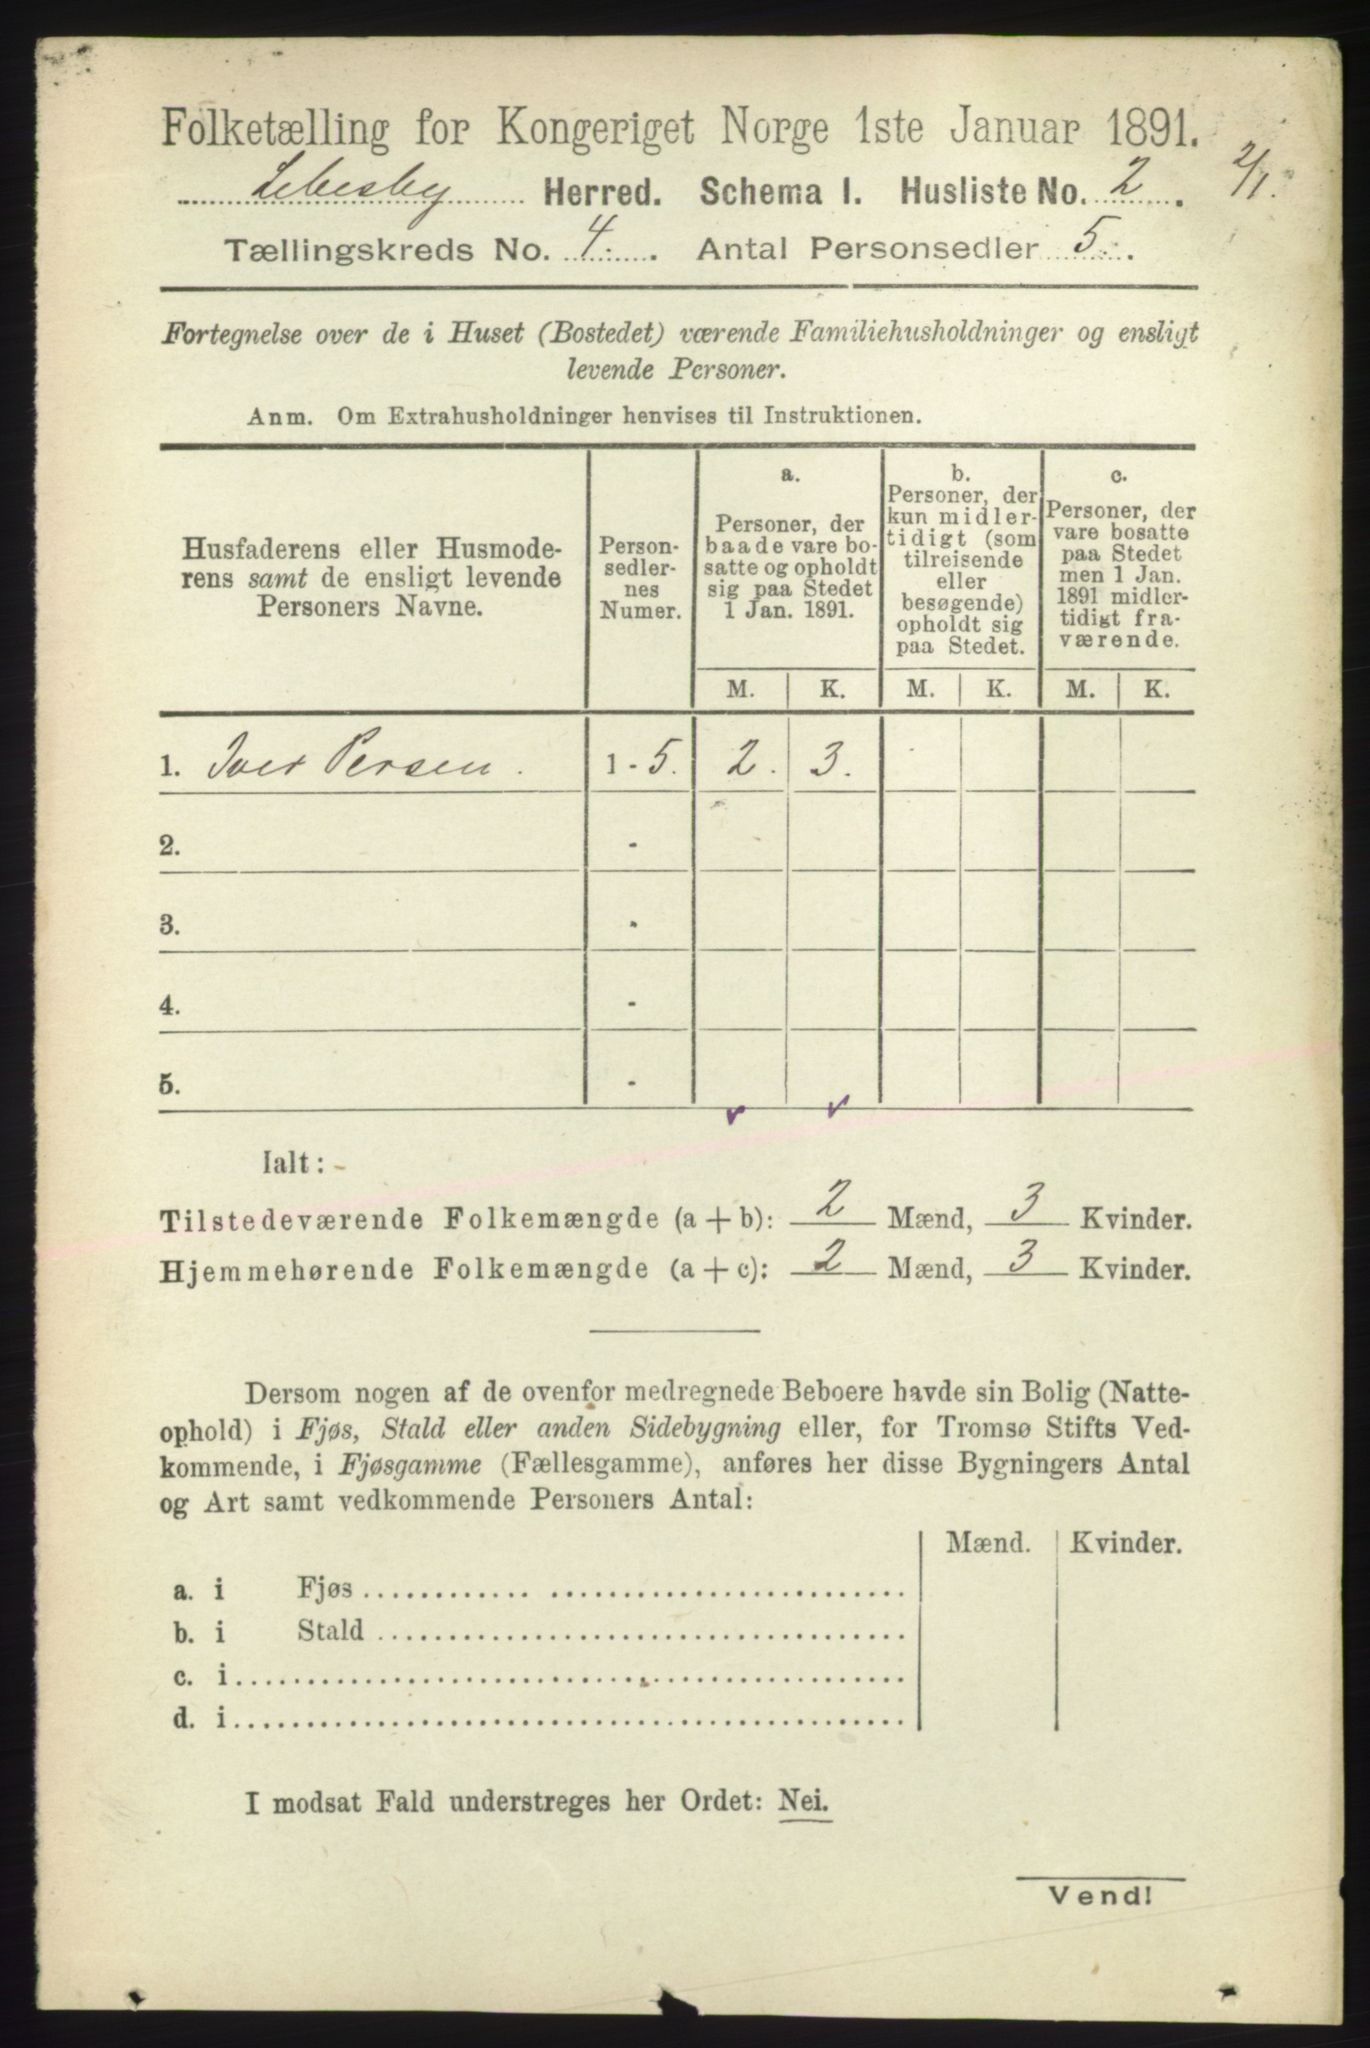 Folketælling for Kongeriget Norge 1ste Januar 1891.
Lebesby Herred. Schema I. Husliste No. 2. 2/1.
Tællingskreds No. 4. Antal Personsedler 5.
Fortegnelse over de i Huset (Bostedet) værende Familiehusholdninger og ensligt
levende Personer.
Anm. Om Extrahusholdninger henvises til Instruktionen.
Husfaderens eller Husmode-
rens samt de ensligt levende
Personers Navne.
Person-
sedler-
nes
Numer.
a.
Personer, der
baade vare bo-
satte og opholdt
sig paa Stedet
1 Jan. 1891.
b.
Personer, der
kun midler-
tidigt (som
tilreisende
eller
besøgende)
opholdt sig
paa Stedet.
c.
Personer, der
vare bosatte
paa Stedet
men 1 Jan.
1891 midler-
tidigt fra-
værende.
M. K. M. K. M. K.
1. Iver Persen. 1 - 5. 2. 3.
2. -
3. -
4. -
5. -
Ialt:
Tilstedeværende Folkemængde (a + b): 2 Mænd, 3 Kvinder.
Hjemmehørende Folkemængde (a + c): 2 Mænd, 3 Kvinder.
Dersom nogen af de ovenfor medregnede Beboere havde sin Bolig (Natte-
ophold) i Fjøs, Stald eller anden Sidebygning eller, for Tromsø Stifts Ved-
kommende, i Fjøsgamme (Fællesgamme), anføres her disse Bygningers Antal
og Art samt vedkommende Personers Antal:
Mænd. Kvinder.
a. i Fjøs
b. i Stald
c. i
d. i
I modsat Fald understreges her Ordet: Nei.
Vend!